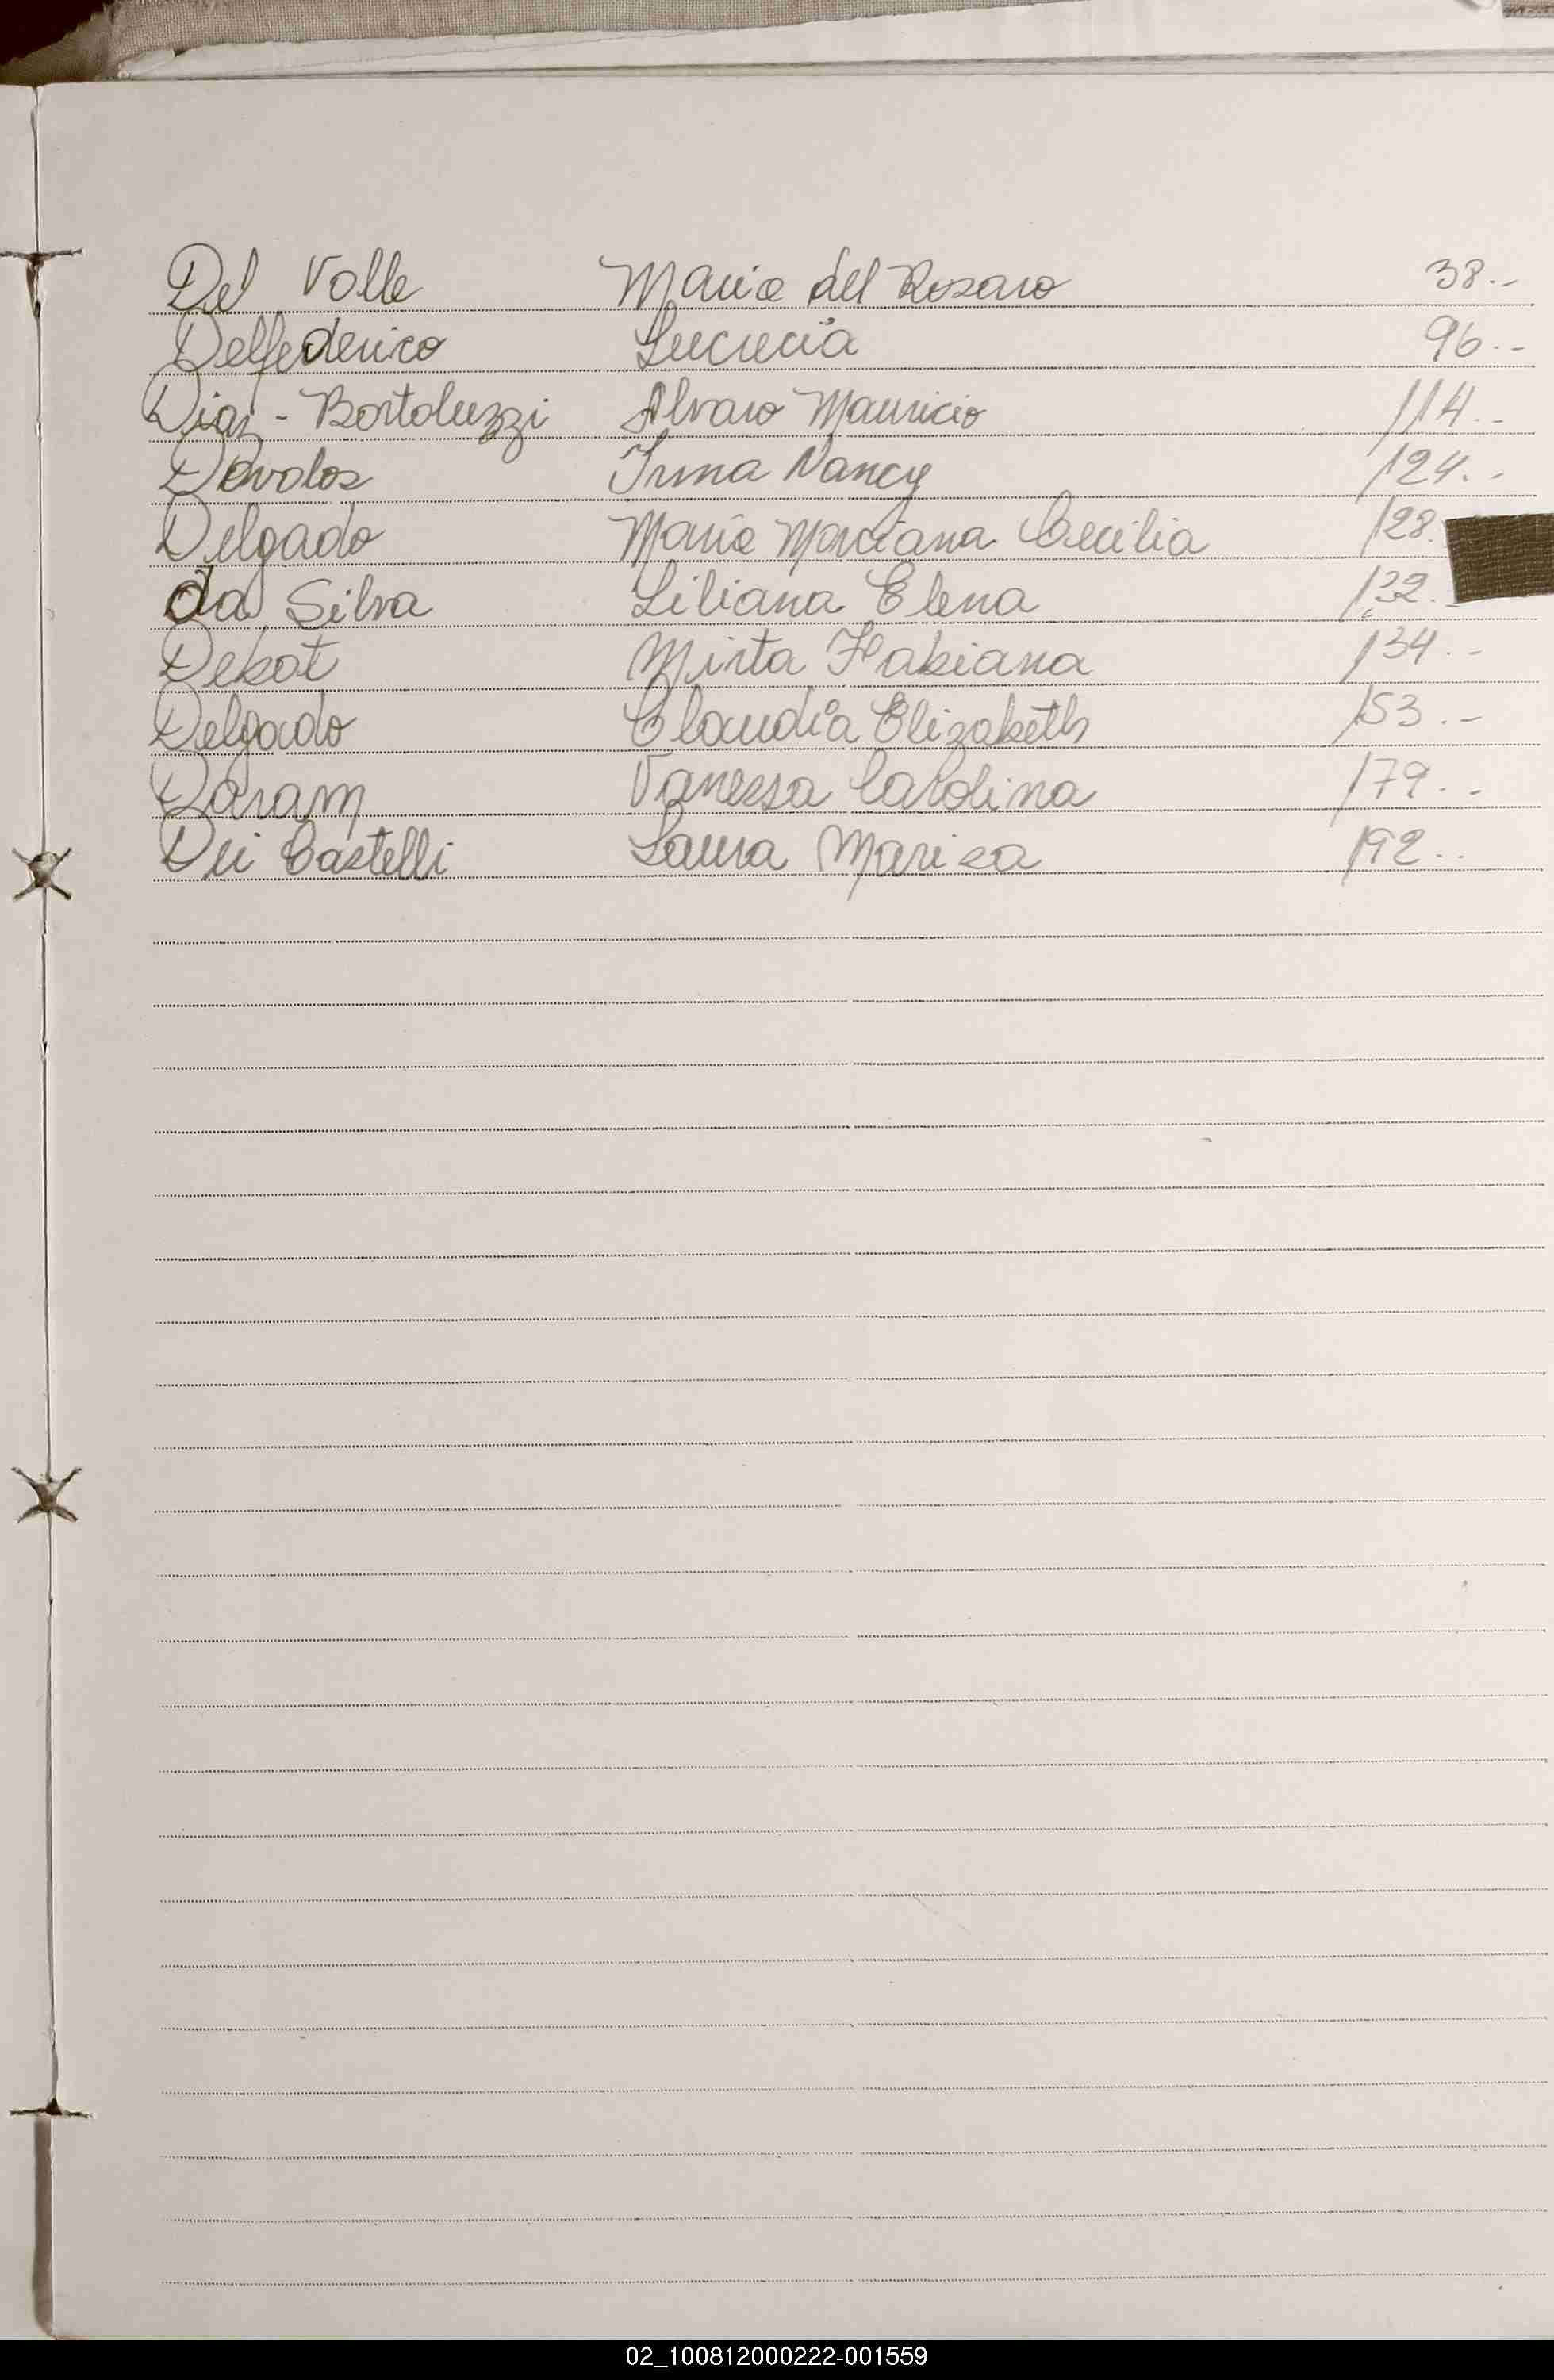 Del Valle Maria del Rosario 38.-
Delfederico Lucrecia 96.-
Diaz - Bortoluzzi Alvaro Mauricio 114.-
Davalos Irma Nancy 124.-
Delgado Maria Marciana Cecilia 128.
da Silva Liliana Elena 132.-
Dekat Mirta Fabiana 134.-
Delgado Claudia Elizabeth 153.-
Daram Vanessa Carolina 179.-
Dei Castelli Laura Marisa 192.-
02_100812000222-001559